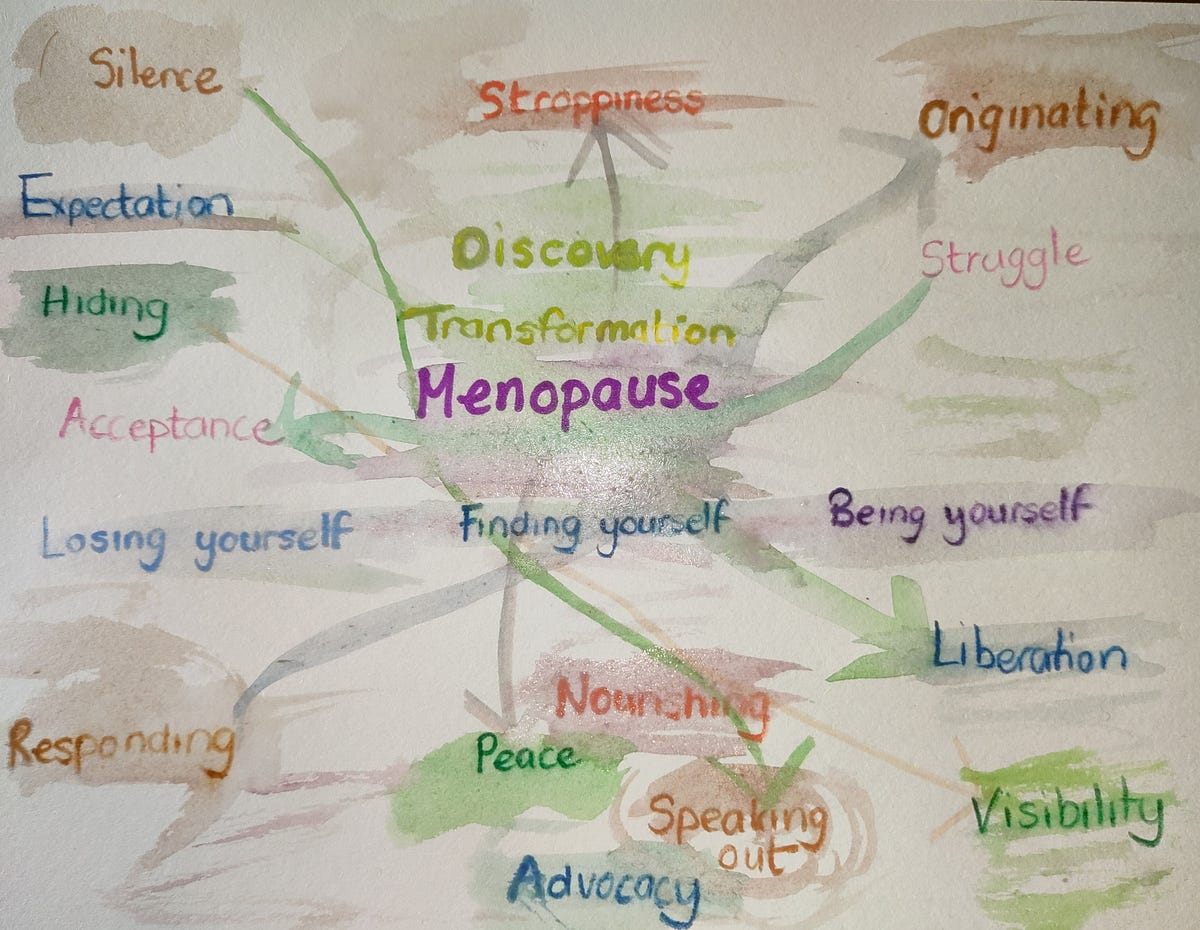 Silence
Stroppiness
Originating
Expectation
Discovery
Struggle
Hiding
Transformation
Menopause
Acceptance
Losing yourself
Finding yourself
Being yourself
Liberation
Nourishing
Responding
Peace
Speaking
out
Visibility
Advocacy